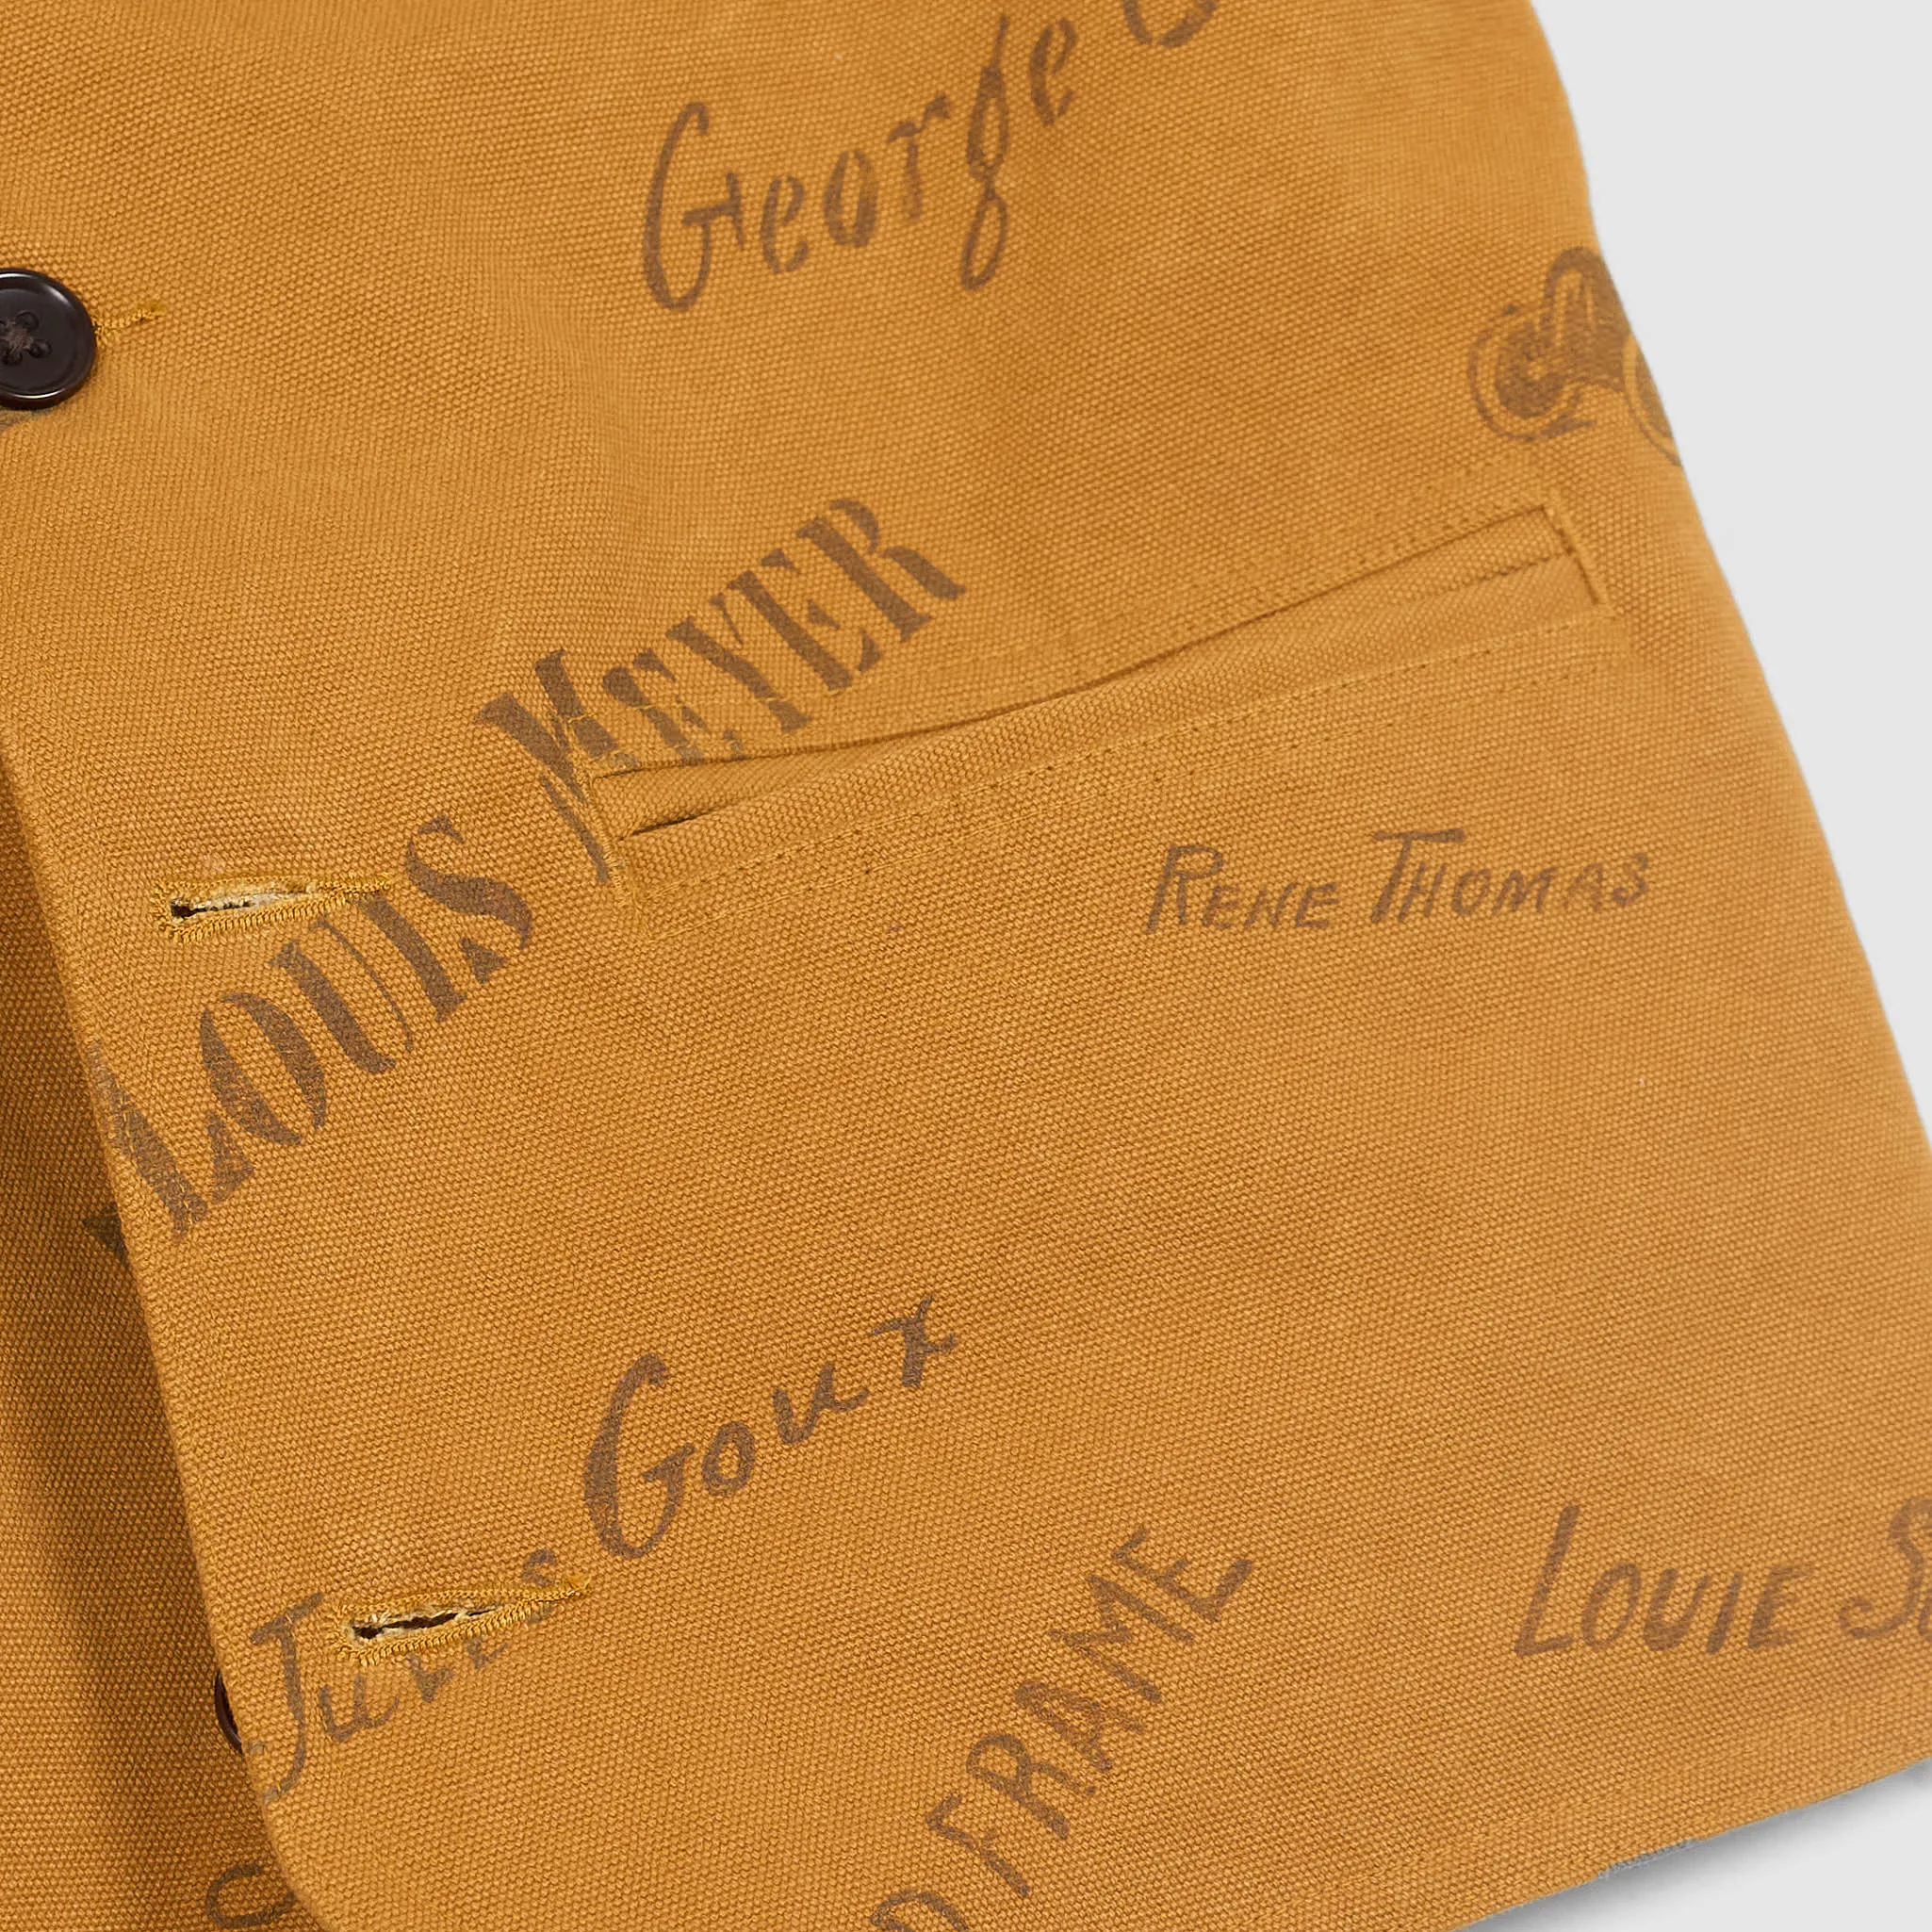 George
LOUIS MEYER
RENE THOMAS
JULES Goux
FRAME
LOUIE